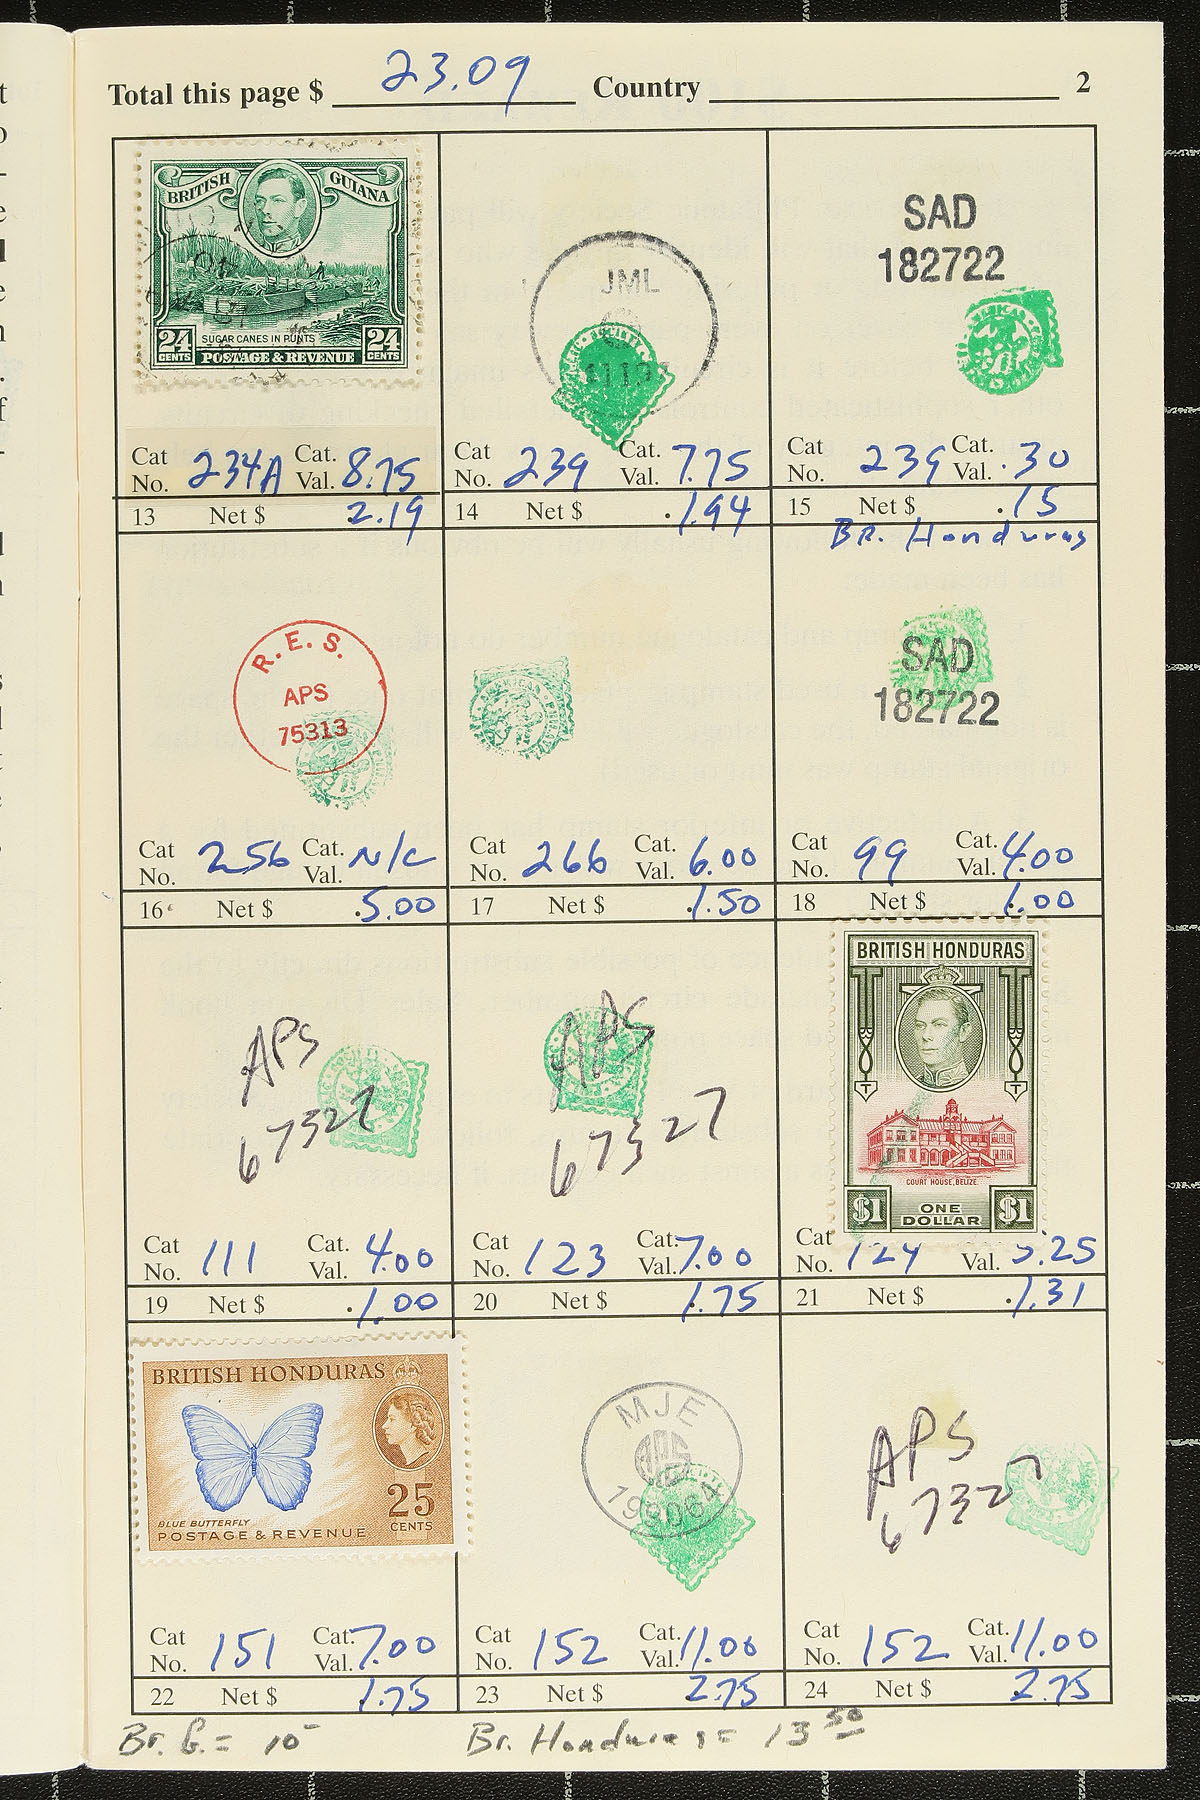 Total this page $ 23.09 Country 2
BRITISH GUIANA
24 CENTS SUGAR CANES IN PUNTS 24 CENTS
POSTAGE & REVENUE
Cat No. 234A Cat. Val. 8.75
13 Net $ 2.19
JML
Cat No. 239 Cat. Val. 7.75
14 Net $ 1.94
SAD
182722
Cat No. 239 Cat. Val. .30
15 Net $ .15
R.E.S.
APS
75313
Cat No. 256 Cat. Val. N/C
16 Net $ 5.00
Cat No. 266 Cat. Val. 6.00
17 Net $ 1.50
Br. Honduras
SAD
182722
Cat No. 99 Cat. Val. 4.00
18 Net $ 1.00
APS
67327
Cat No. 111 Cat. Val. 4.00
19 Net $ 1.00
APS
67327
Cat No. 123 Cat. Val. 7.00
20 Net $ 1.75
BRITISH HONDURAS
COURT HOUSE, BELIZE.
$1 ONE DOLLAR $1
Cat No. 124 Val. 5.25
21 Net $ 1.31
BRITISH HONDURAS
25 CENTS
BLUE BUTTERFLY
POSTAGE & REVENUE
Cat No. 151 Cat. Val. 7.00
22 Net $ 1.75
MJE
APS
199064
Cat No. 152 Cat. Val. 11.00
23 Net $ 2.75
APS
67327
Cat No. 152 Cat. Val. 11.00
24 Net $ 2.75
Br. G. = 10 Br. Honduras = 13 50